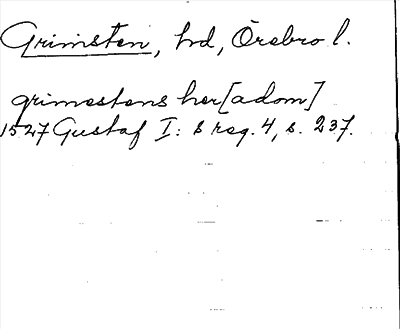 Grimsten, hd, Örebro l.
grimestens her[adom]
1527 Gustaf I: s reg. 4, s. 237.